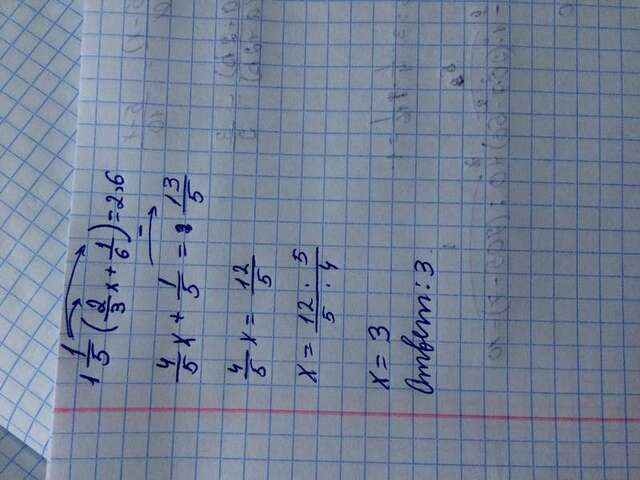 1 1/5 (2/3 x + 1/6) = 2,6
4/5 x + 1/5 = 13/5
4/5 x = 12/5
x = 12 · 5 / 5 · 4
x = 3
Ответ: 3